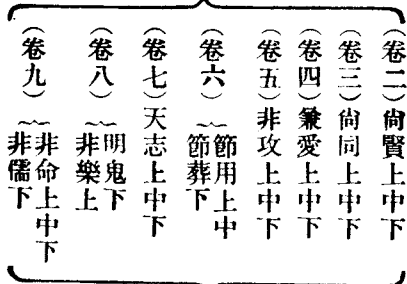 (卷二)尙賢上中下
(卷三)尙同上中下
(卷四)兼愛上中下
(卷五)非攻上中下
(卷六)節用上中
節葬下
(卷七)天志上中下
(卷八)明鬼下
非樂上
(卷九)非命上中下
非儒下